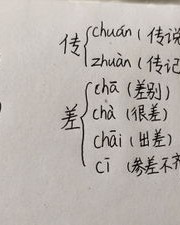 传 chuán (传说
zhuàn (传记
差 chā (差别)
chà (很差)
chāi (出差)
cī (参差不齐